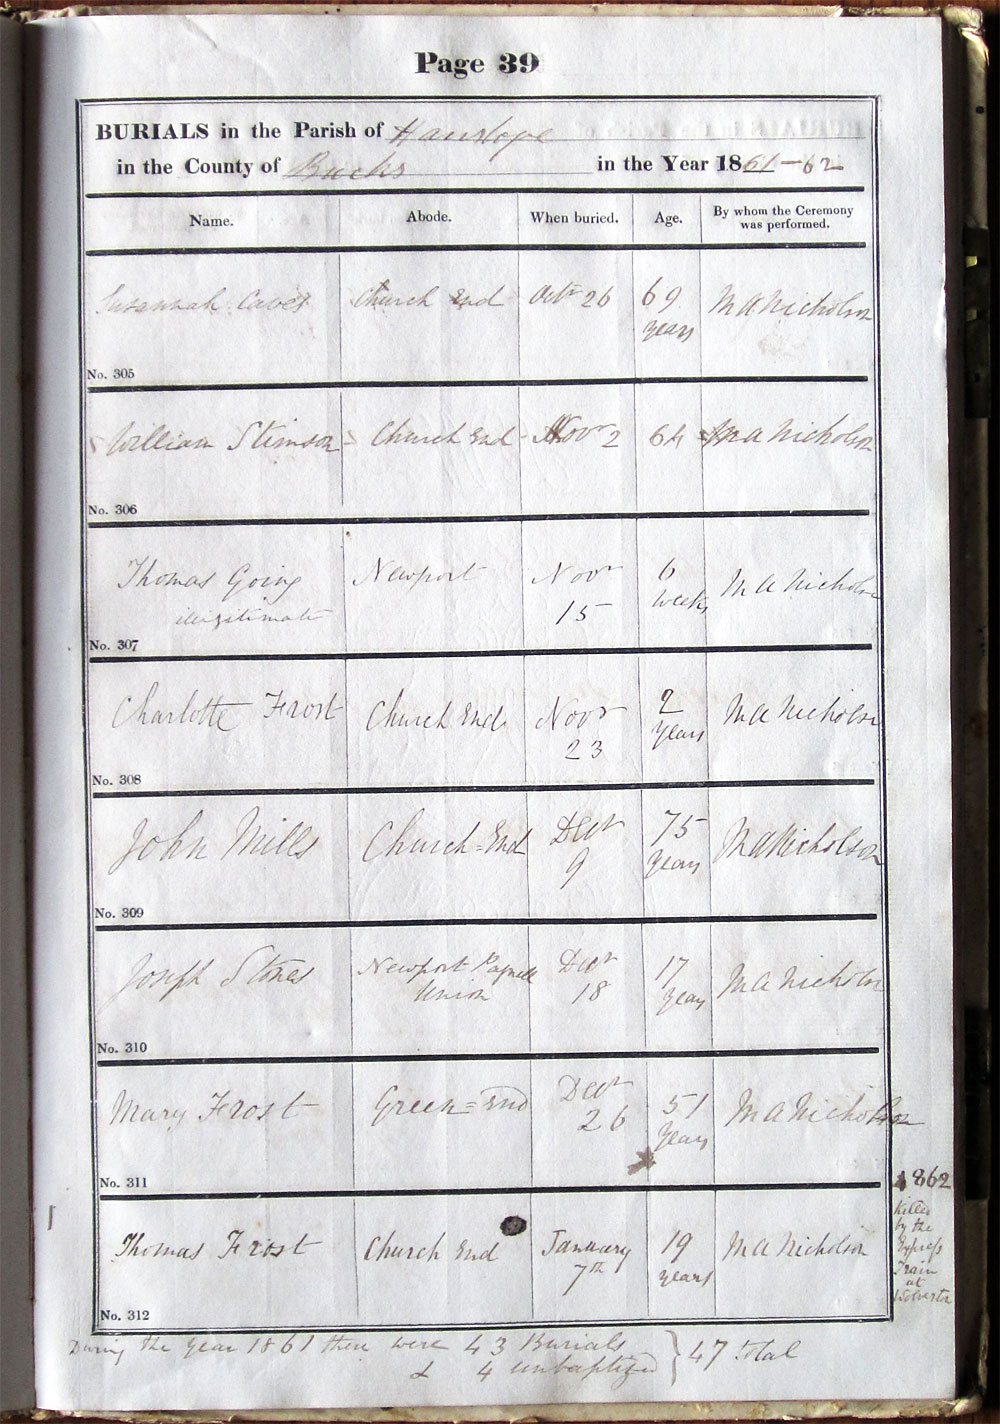 Page 39
BURIALS in the Parish of Hanslope
in the County of Bucks in the Year 1861-62
Name. Abode. When buried. Age. By whom the Ceremony
was performed.
Susannah Cave Church End Octr 26 69
years M A Nicholson
No. 305
William Stimson Church End Novr 2 64 M A Nicholson
No. 306
Thomas Going Newport Novr 6 M A Nicholson
illegitimate 15 weeks
No. 307
Charlotte Frost Church End Novr 2 M A Nicholson
23 years
No. 308
John Mills Church=End Decr 75 M A Nicholson
9 years
No. 309
Joseph Stones Newport Pagnell Decr 17 M A Nicholson
Union 18 years
No. 310
Mary Frost Green=End Decr 51 M A Nicholson
26 years
No. 311
1862
Killed
by the
Express
Train
at
Wolverton
Thomas Frost Church End January 19 M A Nicholson
7th years
No. 312
During the year 1861 there were 43 Burials
& 4 unbaptized } 47 total